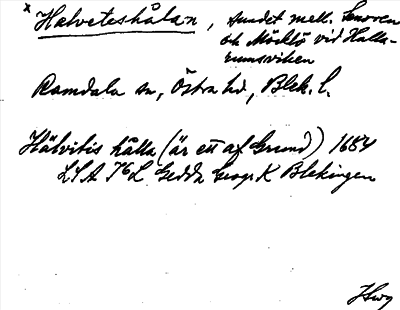 x Helveteshålan, sundet mell. Senoren
och Möcklö vid Halla-
rumsviken
Ramdala sn, Östra hd, Blek. l.
Hälvitis hålla (är ett af Grund) 1684
LSA Gedda Geogr K Blekingen